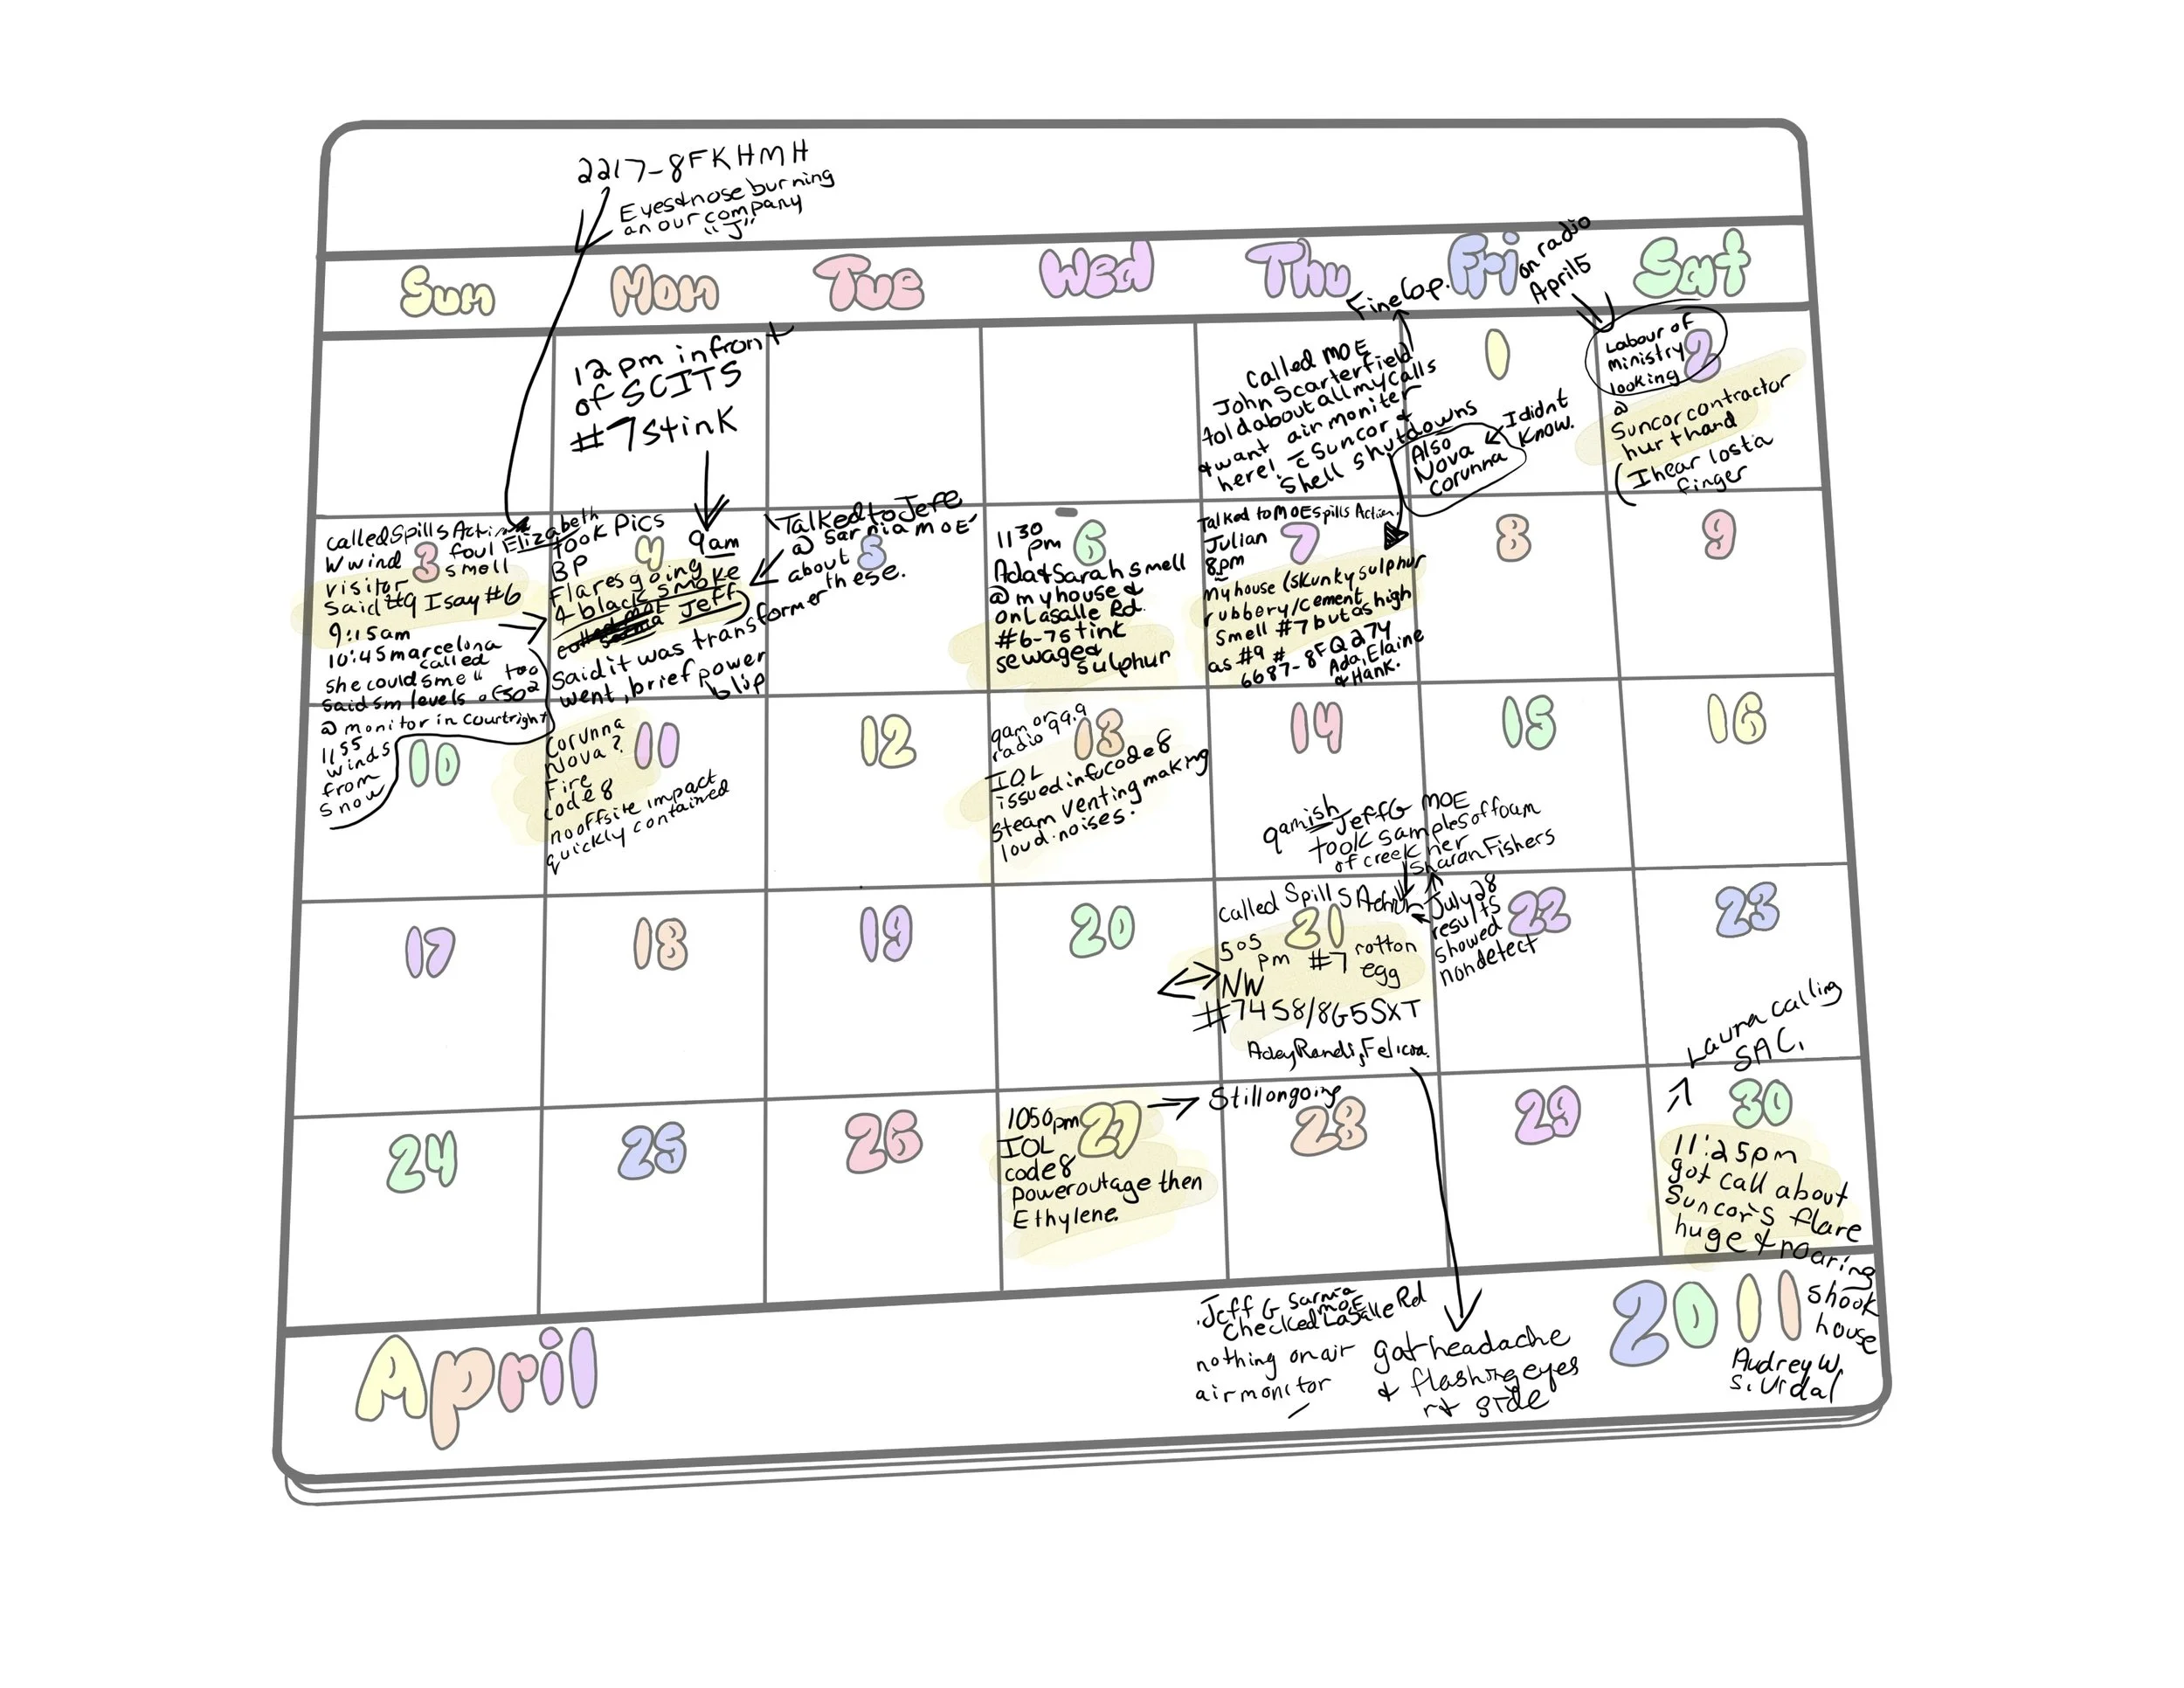 2217-8FKHMH
Eyes&nose burning
an our company
"J"
Sun Mon Tue Wed Thu Fri Sat
on radio
April 5
12 pm infront
of SCITS
#7 stink
Fine Cop.
Called MOE
John Scarterfield
told about all my calls
& want air moniter
here! c Suncor &
Shell shutdowns
1
Also
Nova
Corunna
I didnt
Know.
2
Labour of
ministry
looking
@
Suncor contractor
hurt hand
(I hear lost a
finger
3
called Spills Action Elizabeth
W wind foul
smell
visitor
said #9 I say #6
9:15am
10:45 marcelona
called
she could smell too
said 5m levels of SO2
@ monitor in Courtright
1155
winds
from
S now
4
took Pics
9am
BP
Flares going
4 black smoke
Jeff
said it was transformer
went, brief power
blip
5
Talked to Jeff
@ Sarnia MOE
about
these.
6
1130
pm
Ada & Sarah smell
@ my house &
on Lasalle Rd.
#6-7 stink
sewage &
sulphur
7
Talked to MOE Spills Action.
Julian
8pm
my house (skunky sulphur
rubbery/cement
smell #7 but as high
as #9 #
6687-8FQ274
Ada, Elaine
& Hank.
8
9
10
11
Corunna
Nova?
Fire
code 8
no offsite impact
quickly contained
12
13
9am on
radio 99.9
IOL
issued info code 8
steam venting making
loud noises.
14
15
16
9amish JeffG MOE
took samples of foam
of creek her
Sharan Fishers
17
18
19
20
21
called Spills Action
505
pm #7 rotton
egg
NW
#7458/8G5SXT
22
July 28
results
showed
nondetect
23
24
25
26
27
1050pm
IOL
code 8
power outage then
Ethylene.
28
Still ongoing
29
Laura calling
SAC.
30
11:25pm
got call about
Suncor's flare
huge & roaring
shook
house
Audrey W.
S. Vidal
Jeff G Sarnia
MOE
Checked LaSalle Rd
nothing on air
air monitor
got headache
& flashing eyes
rt side
April
2011